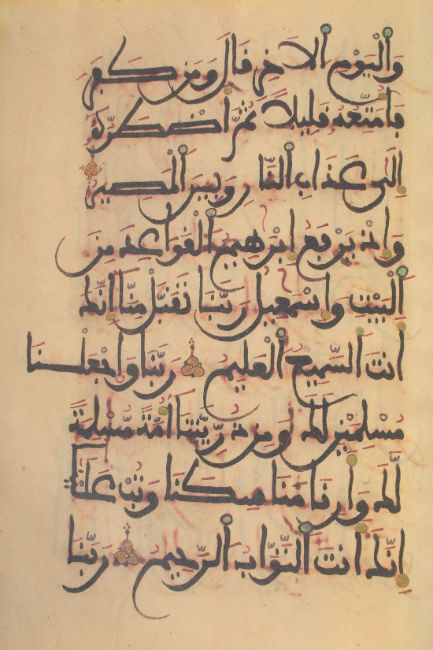 واليوم الاخر قال ومن كفر
فامتعه قليلا ثم اضطره
الى عذاب النار وبيس المصير
واذ يرفع ابرهيم القواعد من
البيت واسمعيل ربنا تقبل منا انك
انت السميع العليم ربنا واجعلنا
مسلمين لك ومن ذريتنا امة مسلمة
لك وارنا مناسكنا وتب علينا
انك انت التواب الرحيم ربنا